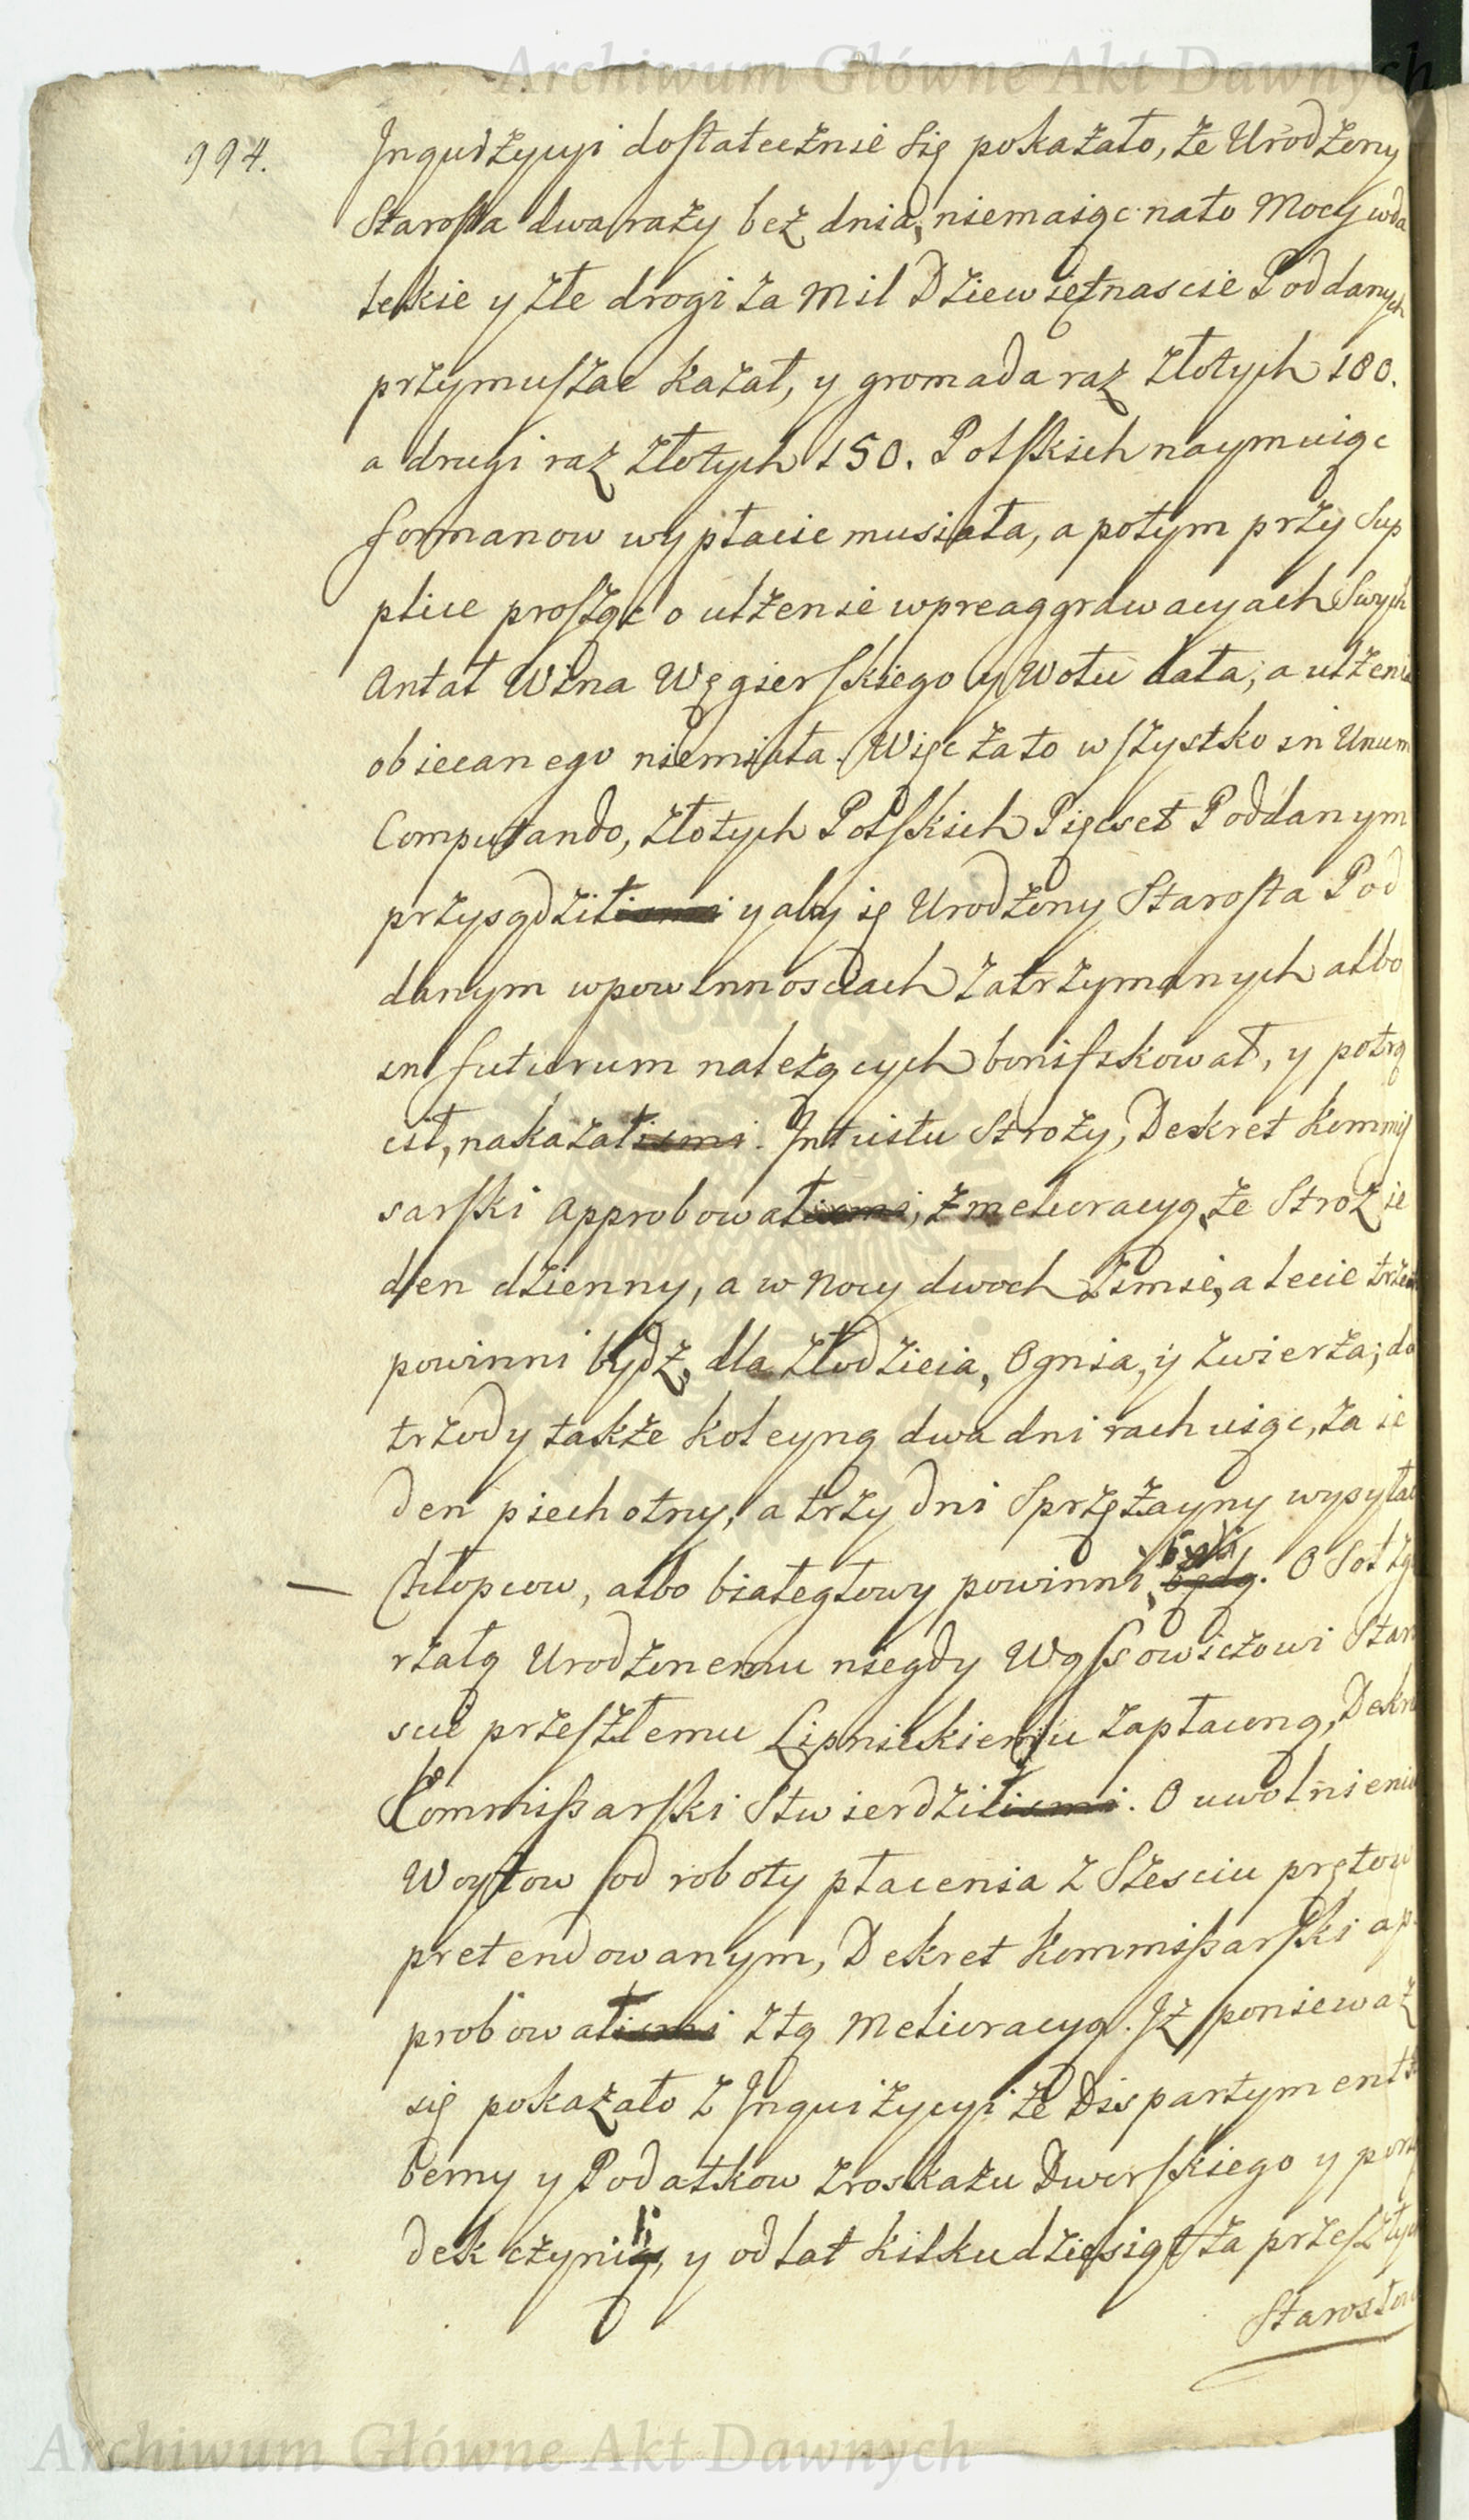 Archiwum Główne Akt Dawnych
994.
Inquizycyi dostatecznie się pokazało, że Urodzony
Starosta dwa razy bez dnia, niemaiąc nato Mocy wda
lekie y złe drogi za mil Dziewiętnascie Poddanych
przymuszac kazał, y gromada raz złotych 180.
a drugi raz złotych 150. Polskich naymuiąc
formanow wypłacic musiała, a potym przy Sup
plice prosząc o ulzenie wpreaggrawacyach Swych
Antał Wina Węgierskiego y Wołu dała, a ulzenia
obiecanego niemiała. Więc zato wszystko in Unum
Computando, złotych Polskich Pięcset Poddanym
przysądził y aby ie Urodzony Starosta Pod
danym wpowinnosciach zatrzymanych albo
in futurum nalezących bonifikował, y potrą
cił, nakazał. Intuitu Strozy, Dekret Kommis
sarski approbował, z melioracyą, że Stroz ie
den dzienny, a w nocy dwoch zimie, a lecie trzech
powinni bydz, dla złodzieia, Ognia, y zwierza; do
trzody także koleyną dwa dni rachuiąc, za ie
den piechotny, a trzy dni Sprzężayny wysyłac
Chłopcow, albo białegłowy powinni. O Sołty
rzałą Urodzonemu niegdy Wąssowiczowi Staro
scie przeszłemu Lipnickiemu zapłaconą, Dekret
Commissarski Stwierdził. O uwolnienie
Woytow od roboty płacenia z Szesciu prętow
pretendowanym, Dekret Kommissarski ap
probował z tą Melioracyą. Iż poniewaz
się pokazało z Inquizycyi że Dispartyment
berny y Podatkow zroskazu Dworskiego y porzą
dek czynili, y od lat kilkudziesiąt za przeszłych
Starostow
Archiwum Główne Akt Dawnych